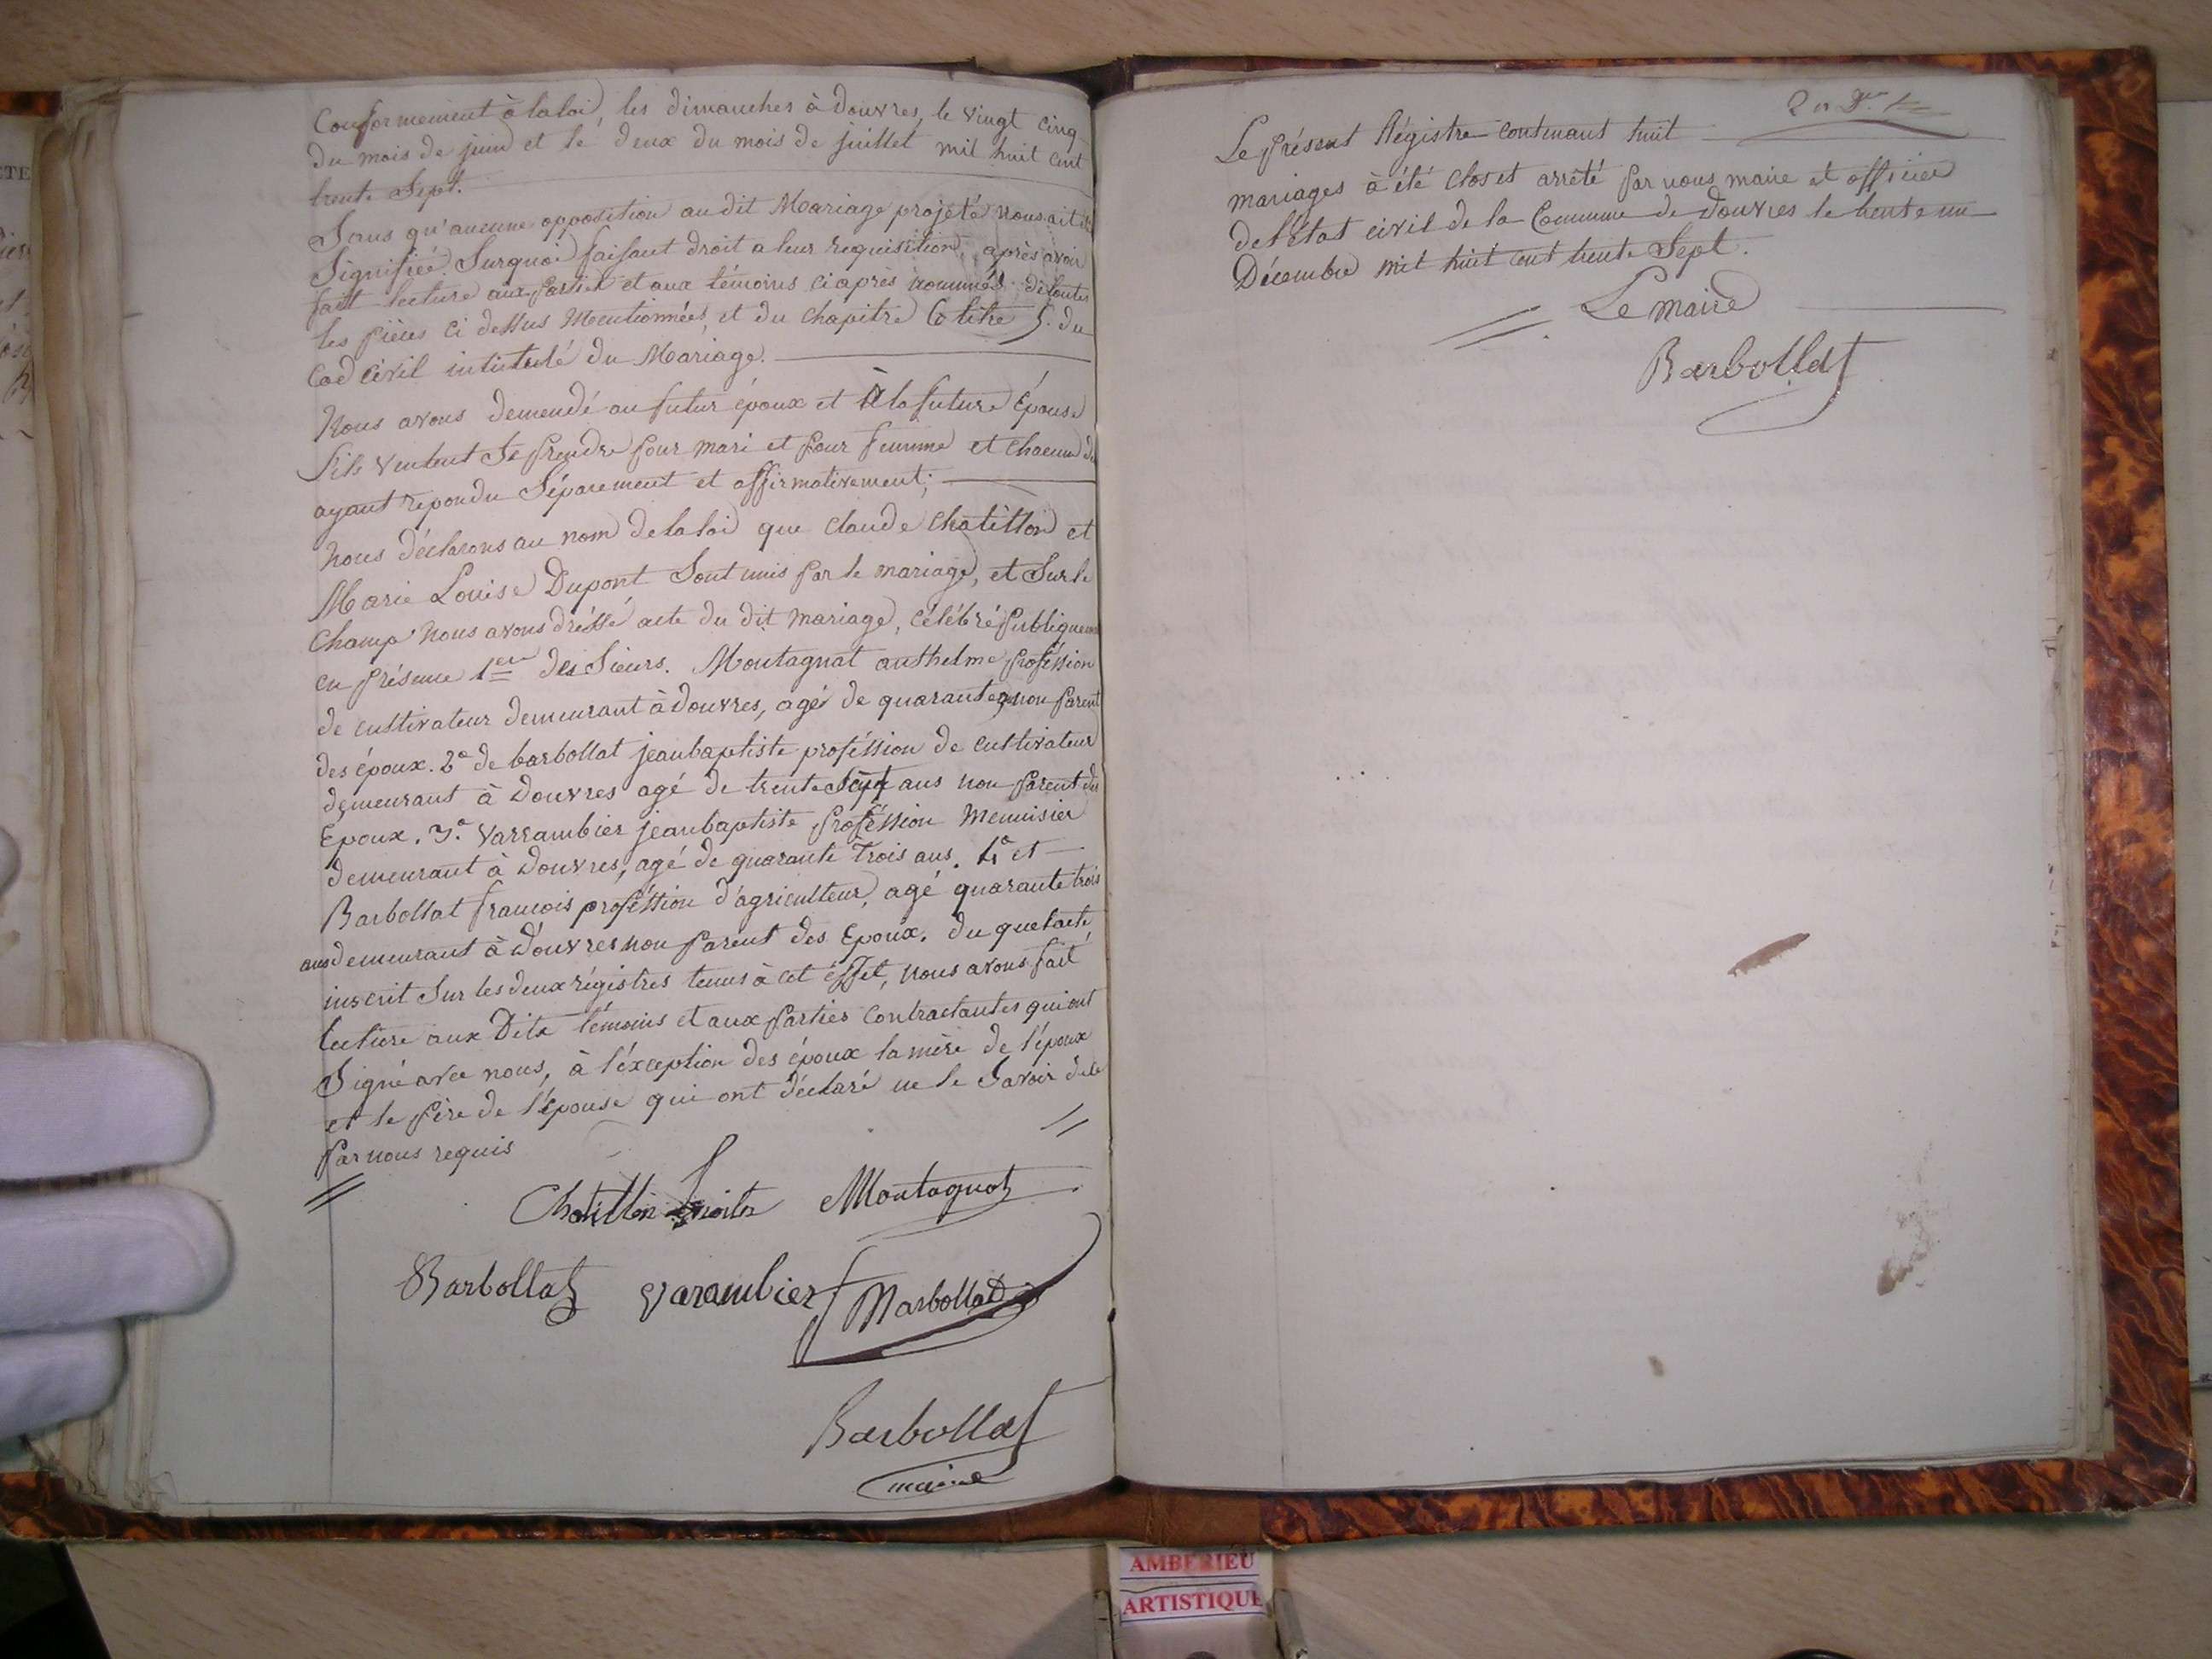 Conformement à la loi, les dimanches à Douvres, le vingt cinq
du mois de juin et le deux du mois de juillet mil huit cent
trente Sept.
Sans qu'aucune opposition au dit Mariage projeté nous ait été
Signifiée. Surquoi faisant droit a leur requisition, après avoir
fait lecture aux parties et aux témoins ci après nommés de toutes
les pièces ci dessus Mentionnées, et du chapitre 6 titre 5. du
Cod civil intitulé du Mariage.
Nous avons demendé au futur époux et À la future Épouse
S'ils veulent Se prendre pour mari et pour femme et chacun d'eux
ayant repondu Séparement et affirmativement;
Nous déclarons au nom de la loi que Claude Chatillon et
Marie Louise Dupont Sont unis par le mariage, et Sur le
Champ Nous avons dréssé acte du dit Mariage, célébré publiquement
en présence 1er des Sieurs. Montagnat anthelme proféssion
de cultivateur demeurant à Douvres, agé de quarante non parent
des époux. 2e de barbollat jeanbaptiste proféssion de cultivateur
demeurant à Douvres agé de trente Sept ans non parent des
Epoux. 3e Varrambier jeanbaptiste proféssion Menuisier
demeurant à Douvres, agé de quarante trois ans. 4e et
Barbollat francois proféssion d'agriculteur, agé quarante trois
ans demeurant à Douvres non parent des Epoux. du quel acte,
inscrit Sur les deux régistres tenus à cet éffet, nous avons fait
lecture aux Dits témoins et aux parties Contractantes qui ont
Signé avec nous, à l'éxception des époux la mère de l'époux
et le père de l'épouse qui ont déclaré ne le Savoir de ce
par nous requis
Chatillon Montagnat
Barbollat Varambier Barbollat
Barbollat
maire
Le présent Régistre contenant huit
mariages à été clos et arrêté par nous maire et officier
de l'état civil de la Commune de Douvres le trente un
Décembre mil huit cent trente Sept.
Le Maire
Barbollat
AMBERIEU
ARTISTIQUE